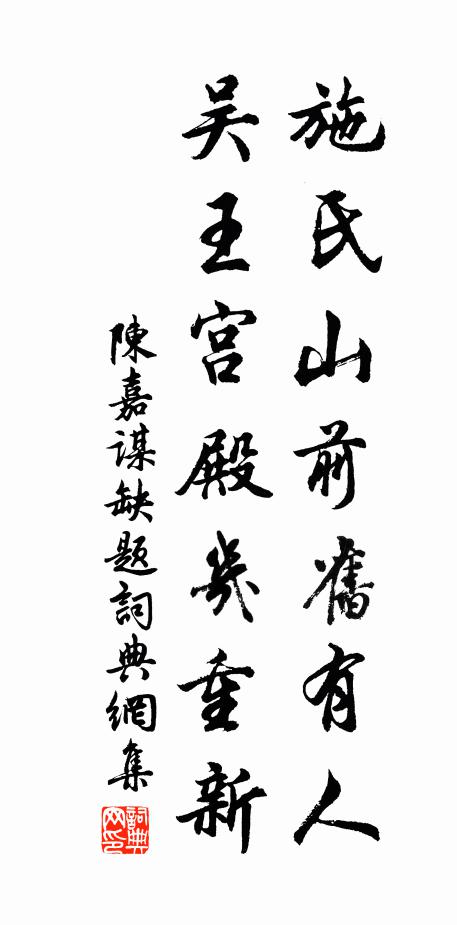 施氏山前舊有人
吴王宫殿幾重新
陳嘉謀缺题詞典網集
詞典网印